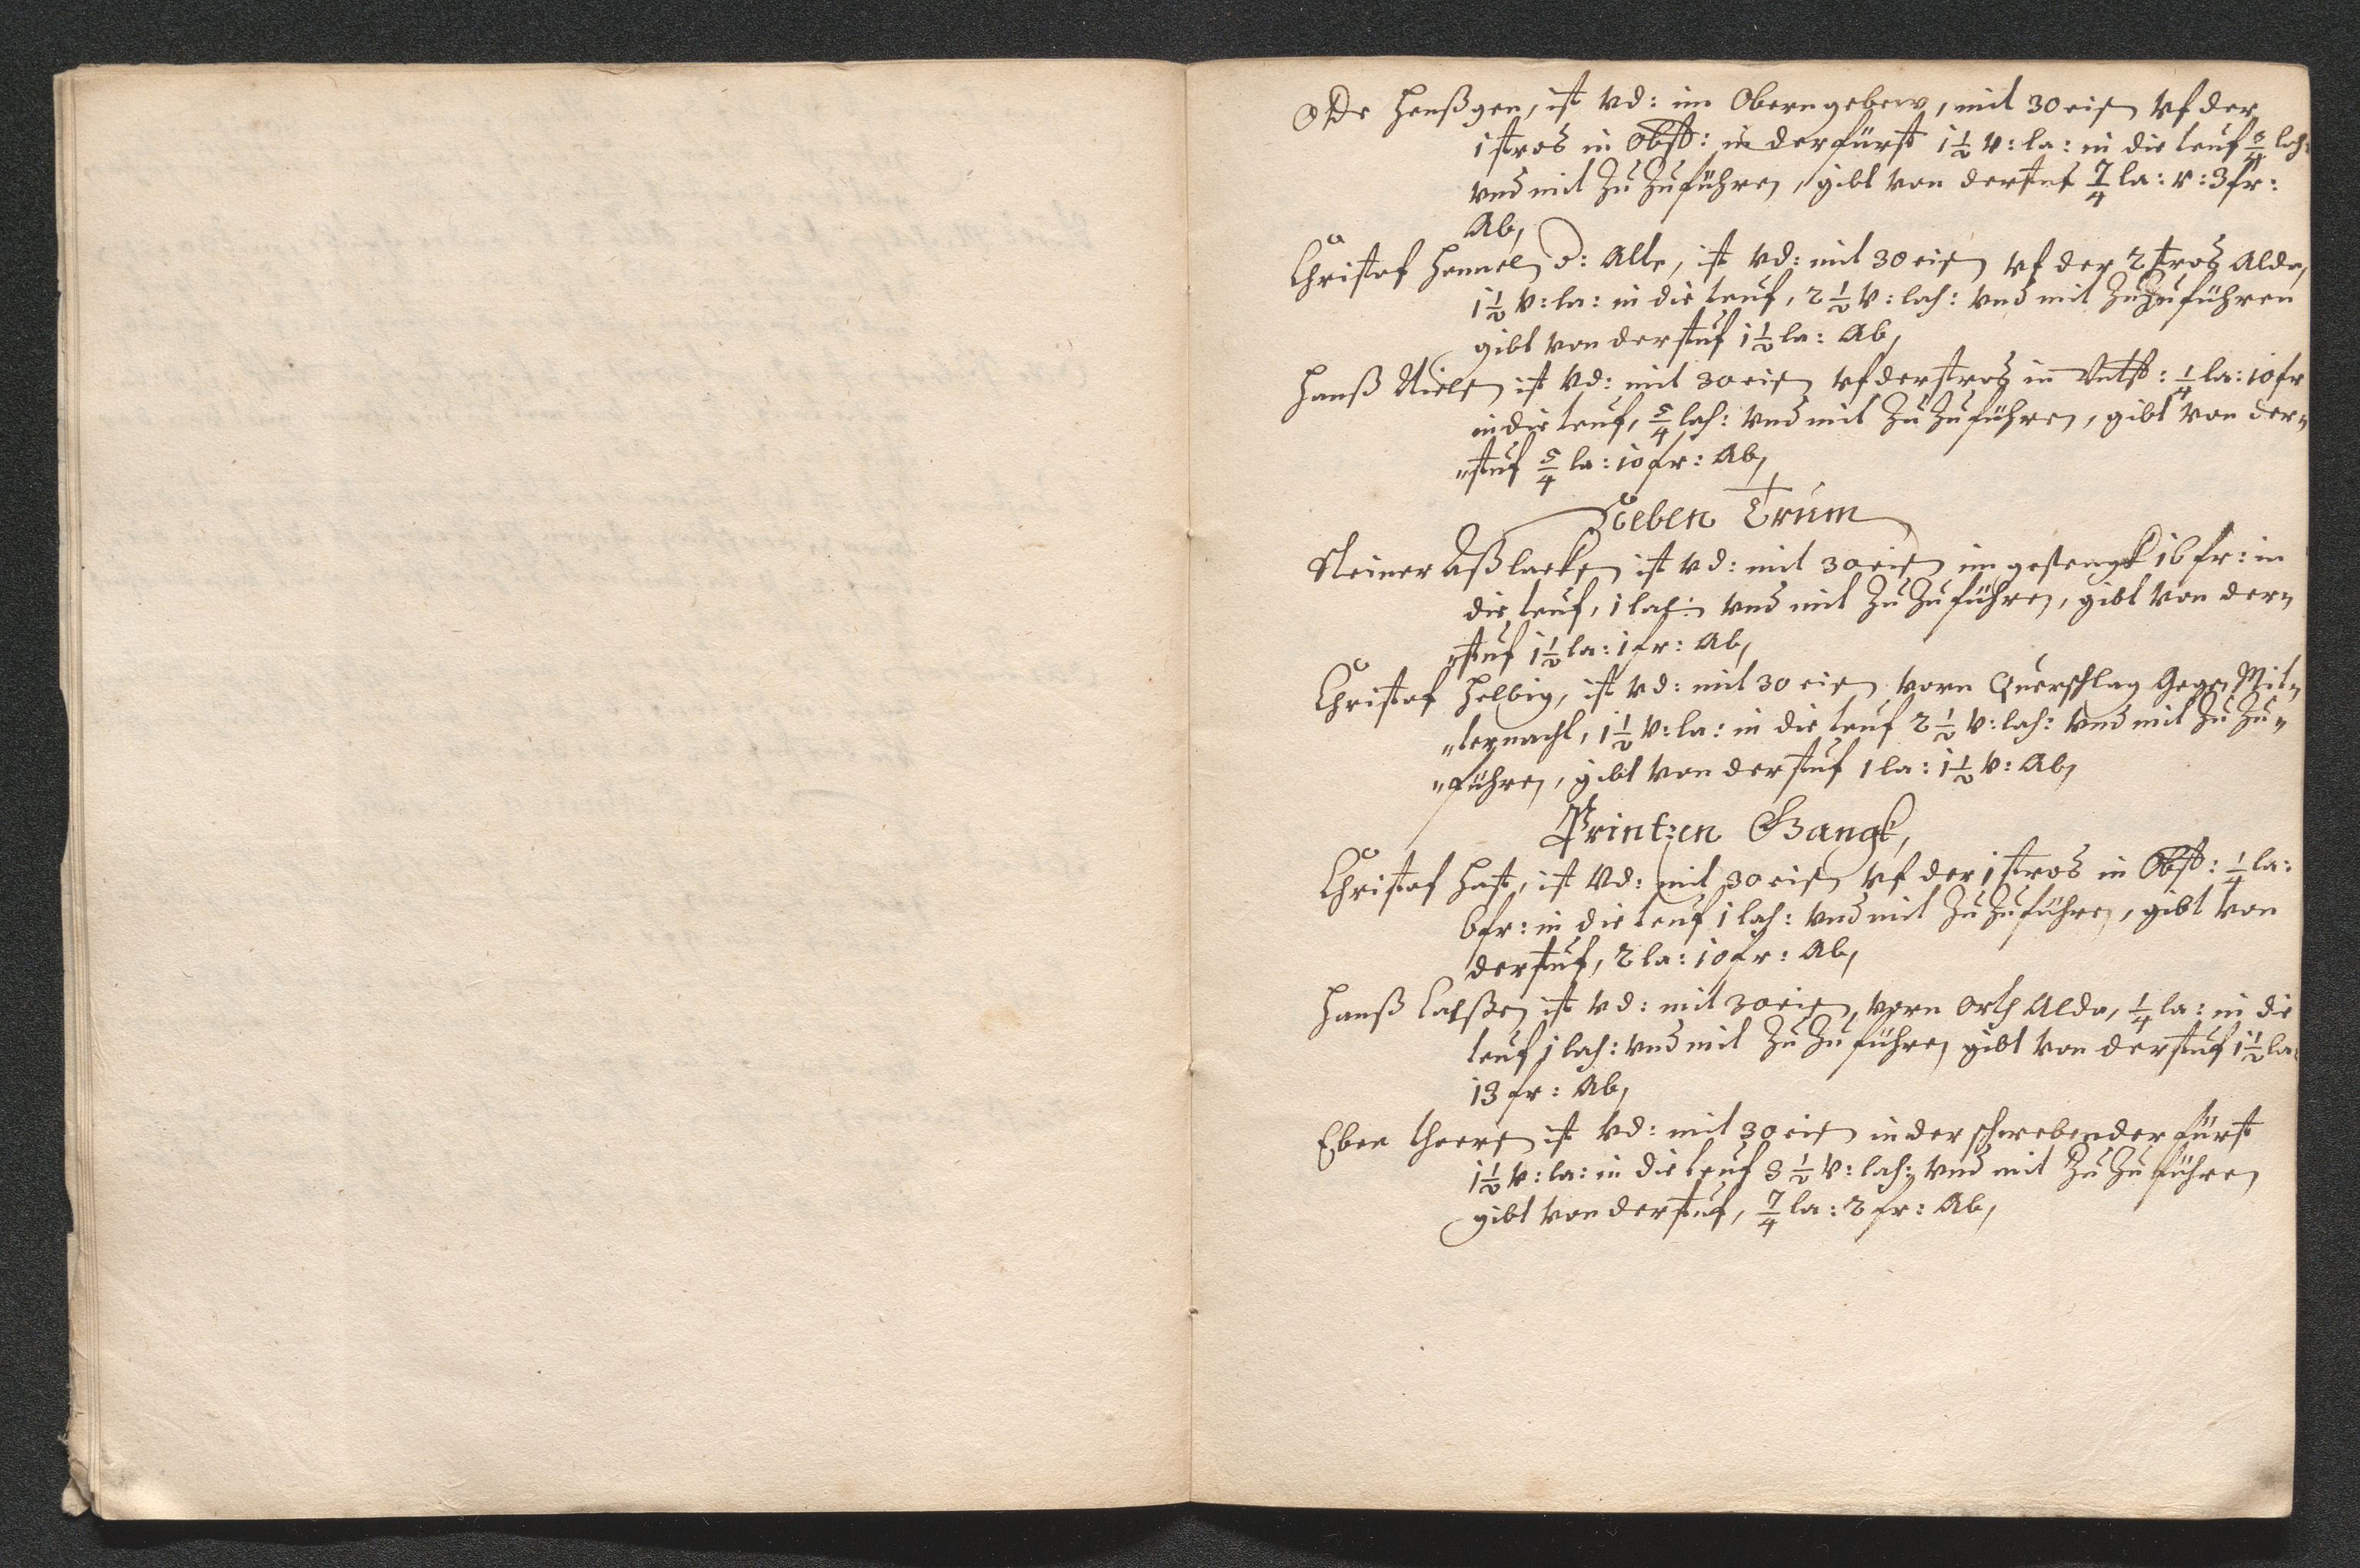 Odde Henßgen, ist vd: im Oberngebew, mit 30 eisen vf der
1 stros in Obst: in der fürst 1 1/2 v: la: in die teuf 3/4 lach:
vnd mit Zu Zuführen, gibt von der stuf 7/4 la: v: 3 fr:
Ab,
Christof Hennel d: Alte, ist vd: mit 30 eisen vf der 2 stros Alda,
1 1/2 v: la: in die teuf, 2 1/2 v: lach: vnd mit Zu Zuführen
gibt von der stuf 1 1/2 la: Ab,
Hanß Nielsen ist vd: mit 30 eisen vf der stros in Vntst: 1/4 la: 10 fr
in die teuf, 5/4 lach: vnd mit Zu Zuführen, gibt von der„
„stuf 5/4 la: 10 fr: Ab,
Sieben Trum
Steiner Aßlacksen ist vd: mit 30 eisen im gesengk 16 fr: in
die teuf, 1 lach: vnd mit Zu Zuführen, gibt von der„
„stuf 1 1/2 la: 1 fr: Ab,
Christof Helbig, ist vd: mit 30 eisen vorn Querschlag Gegen Mit„
„ternacht, 1 1/2 v: la: in die teuf 2 1/2 v: lach: vnd mit Zu Zu„
„führen, gibt von der stuf 1 la: 1 1/2 v: Ab,
Printzen Gangk,
Christof Hast, ist vd: mit 30 eisen vf der 1 stros in Obst: 1/4 la:
6 fr: in die teuf 1 lach: vnd mit Zu Zuführen, gibt von
der stuf, 2 la: 10 fr: Ab,
Hanß Laßen ist vd: mit 30 eisen, vorn Orth Alda, 1/4 la: in die
teuf 1 lach: vnd mit Zu Zuführen gibt von der stuf 1 1/2 la:
13 fr: Ab,
Eben thorsen ist vd: mit 30 eisen in der schwebender fürst
1 1/2 v: la: in die teuf 3 1/2 v: lach: vnd mit Zu Zuführen
gibt von der stuf, 7/4 la: 2 fr: Ab,